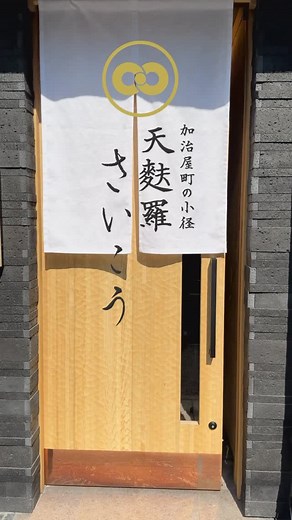 加治屋町の小径
天麩羅
さいこう